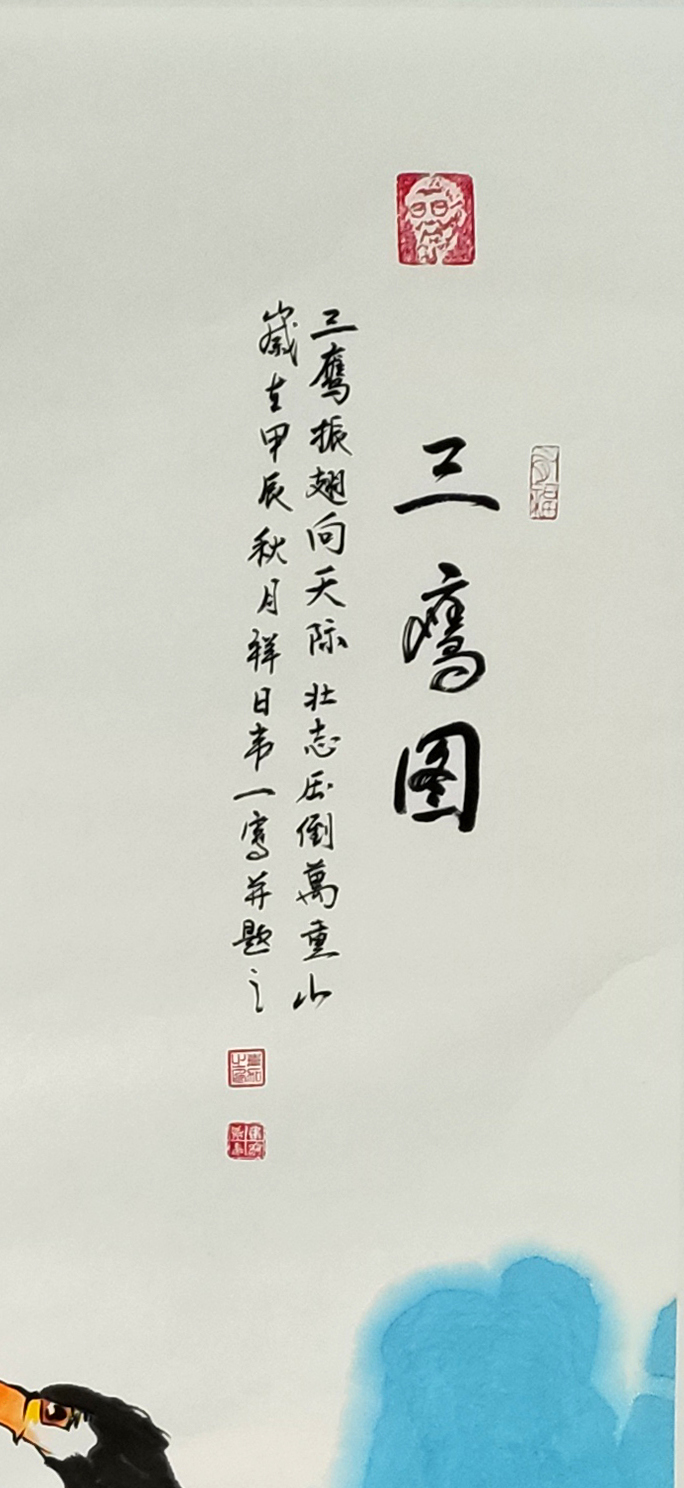 三鹰图
三鹰振翅向天际壮志压倒萬重山
嵗在甲辰秋月祥日韦一寫并题之